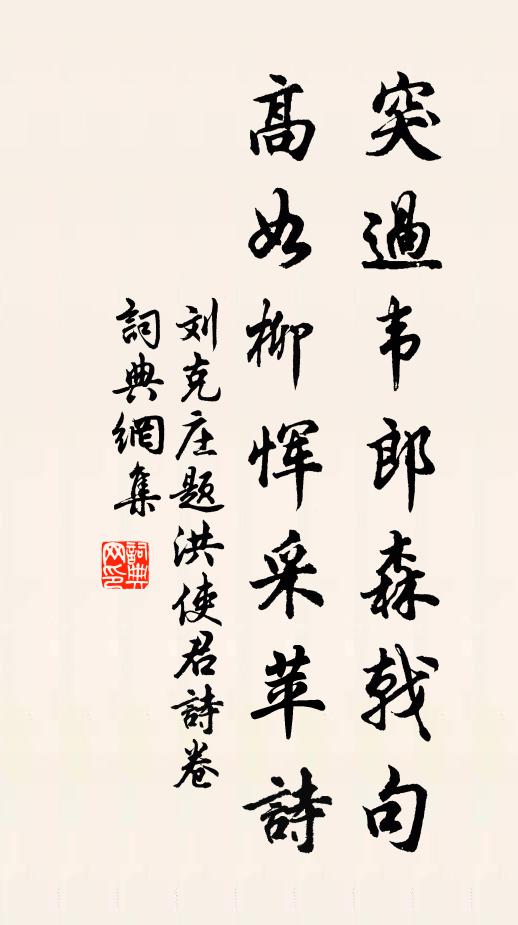 突過韦郎森戟句
高如柳恽采苹詩
刘克庄题洪使君詩卷
詞典網集
詞典网印